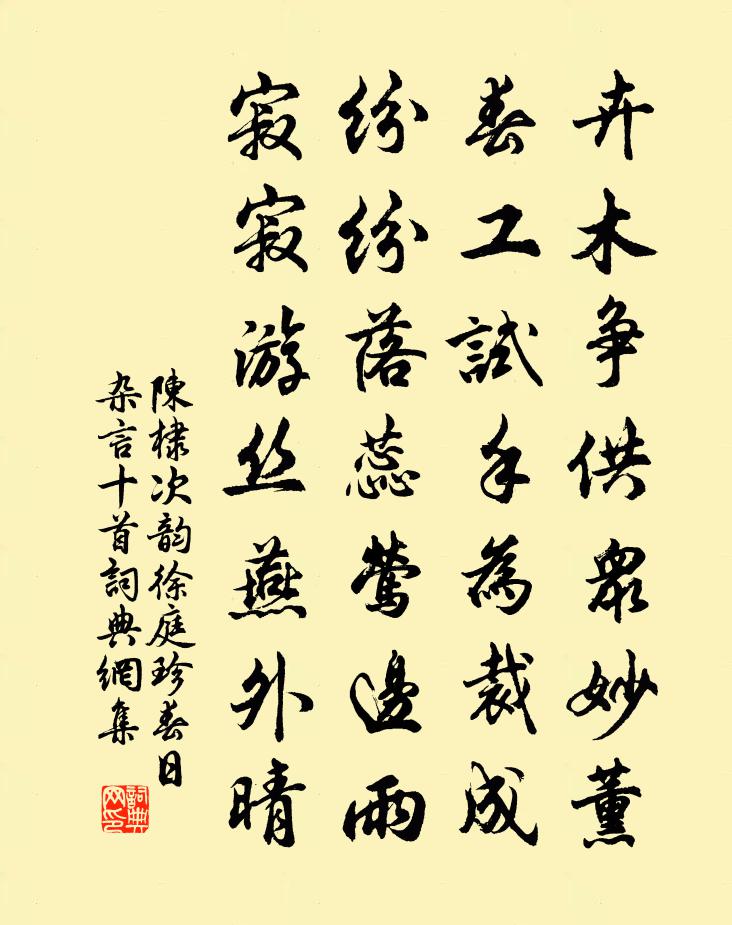 卉木争供衆妙薰
春工試手為裁成
紛紛落蕊鶯邊雨
寂寂游丝燕外晴
陳棣次韵徐庭珍春日
杂言十首詞典網集
詞典
网印